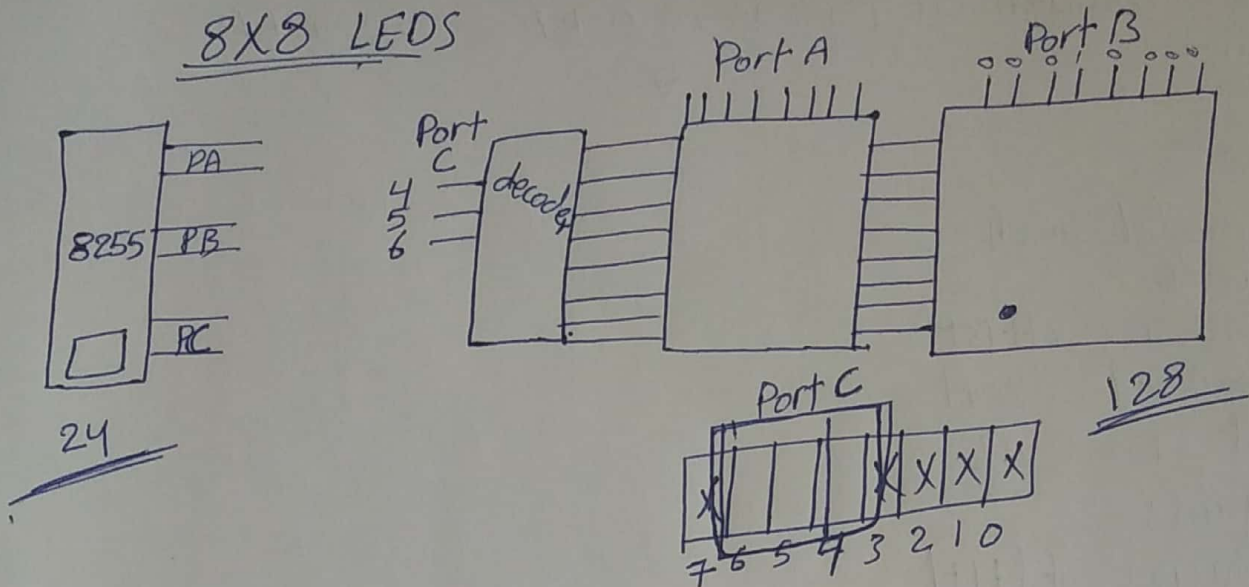 8X8 LEDS
PA
8255
PB
PC
24
Port
C
4
5
6
decoder
Port A
Port B
128
Port C
X X X X X
7 6 5 4 3 2 1 0